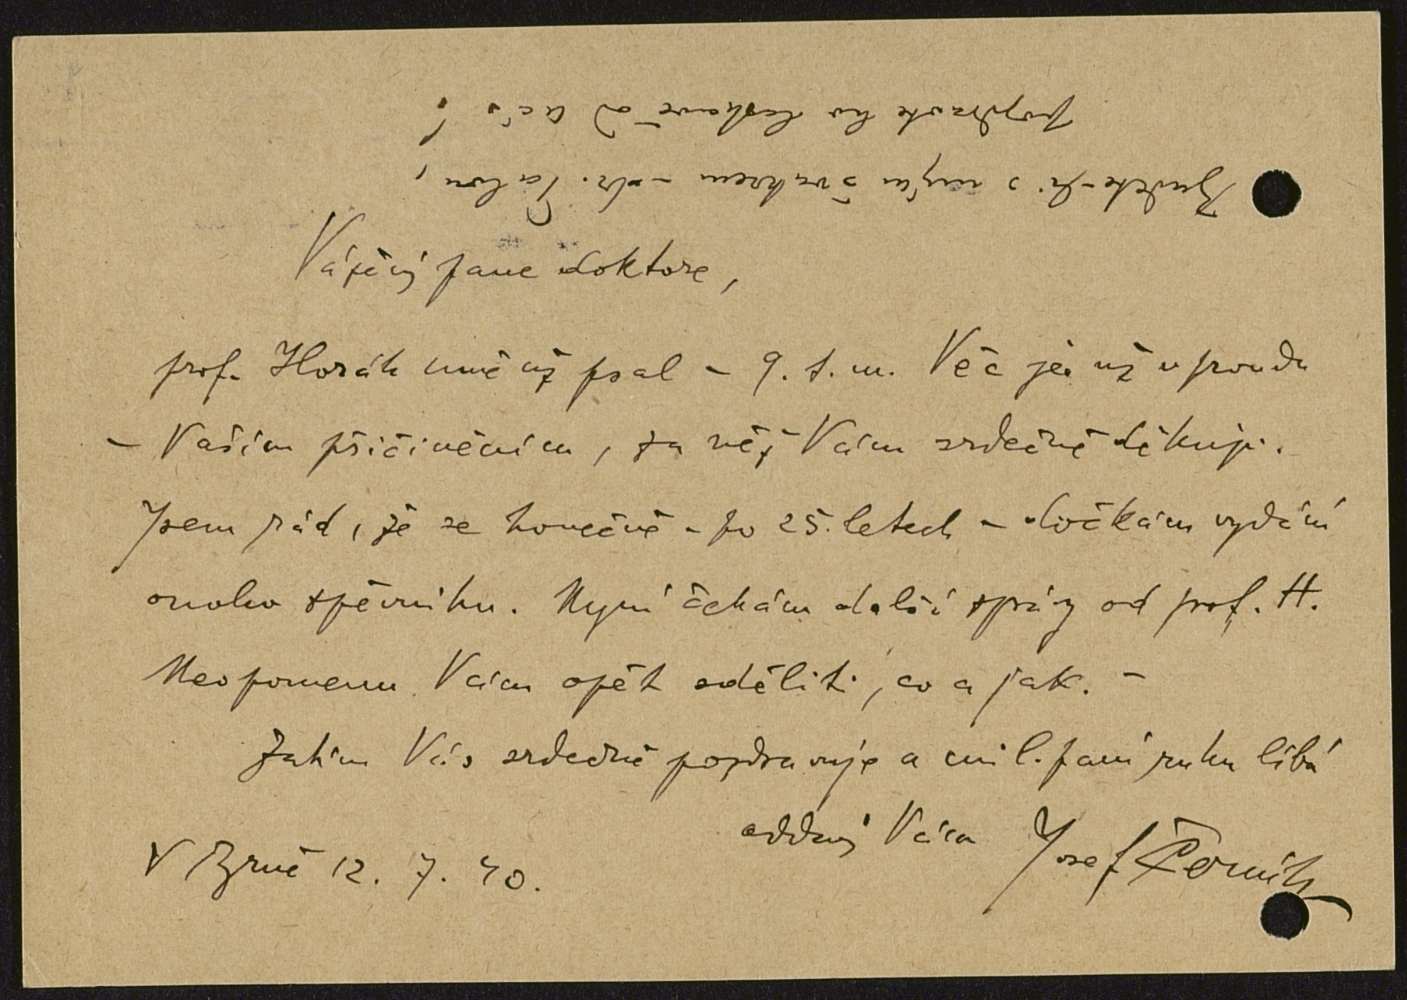 Vážený pane doktore,
prof. Horák mně už psal – 9. t. m. Věc je už v proudu
– Vaším přičiněním, za něž Vám srdečně děkuji.
Jsem rád, že se konečně – po 25 letech – dočkám vydání
onoho zpěvníku. Nyní čekám další zprávy od prof. H.
Neopomenu Vám opět sděliti, co a jak. –
Zatím Vás srdečně pozdravuje a mil. paní ruku líbá
oddaný Vám Josef Černík
V Brně 12. 7. 40.
Budete-li s mým švakrem – dr.
pozdravte ho laskavě od nás!